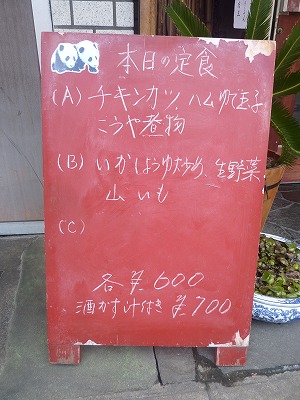 本日の定食
(A) チキンカツ、ハムゆで玉子
こうや煮物
(B) いかしょうゆ炒め、生野菜
山いも
(C)
各 ¥600
酒かす汁付き ¥700